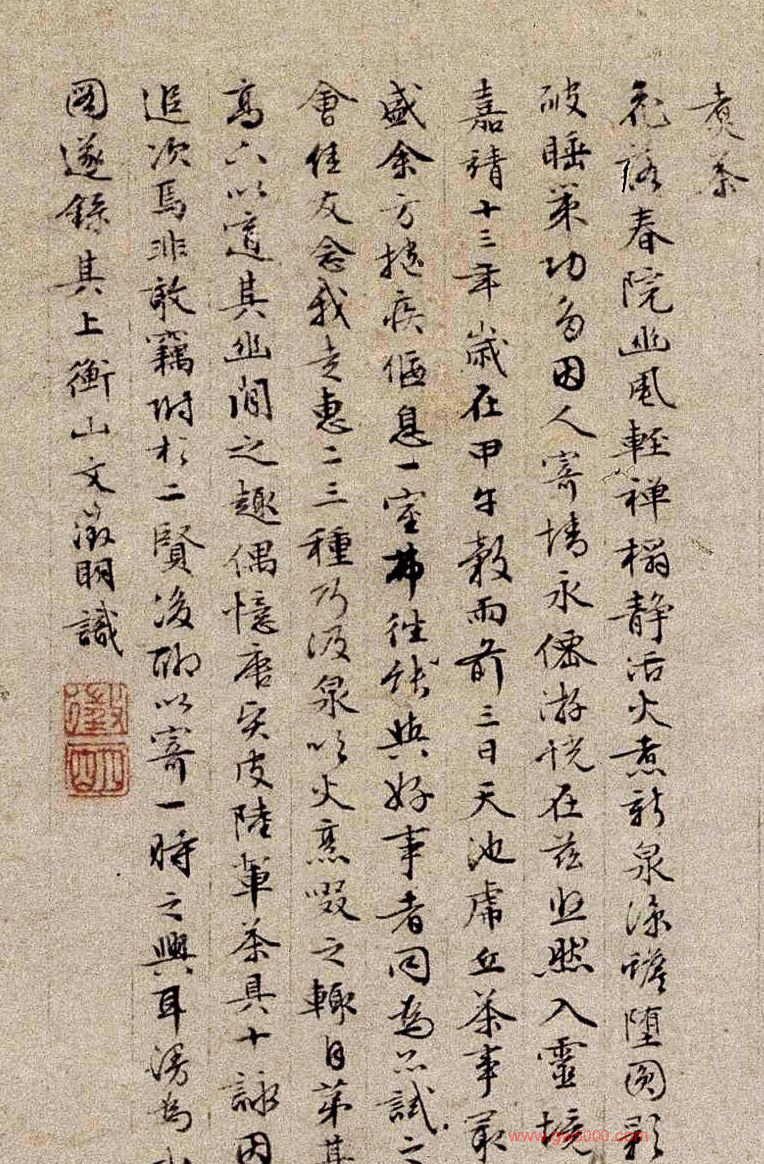 煮茶
花落春院幽風輕禪榻靜活火煮新泉涼蟾墮圓影
破睡策功多因人寄情永僊游恍在茲然入靈境
嘉靖十三年歲在甲午穀雨前三日天池虎丘茶事最
盛余方抱疾偃息一室弗往能與好事者同為品試之
會佳友念我走惠二三種乃汲泉吹火烹啜之輒自第其
高下以適其幽閒之趣偶憶唐賢皮陸輩茶具十詠因
追次焉非敢竊附於二賢後聊以寄一時之興耳漫為小
圖遂錄其上衡山文徵明識
徵明
www.gw5000.com